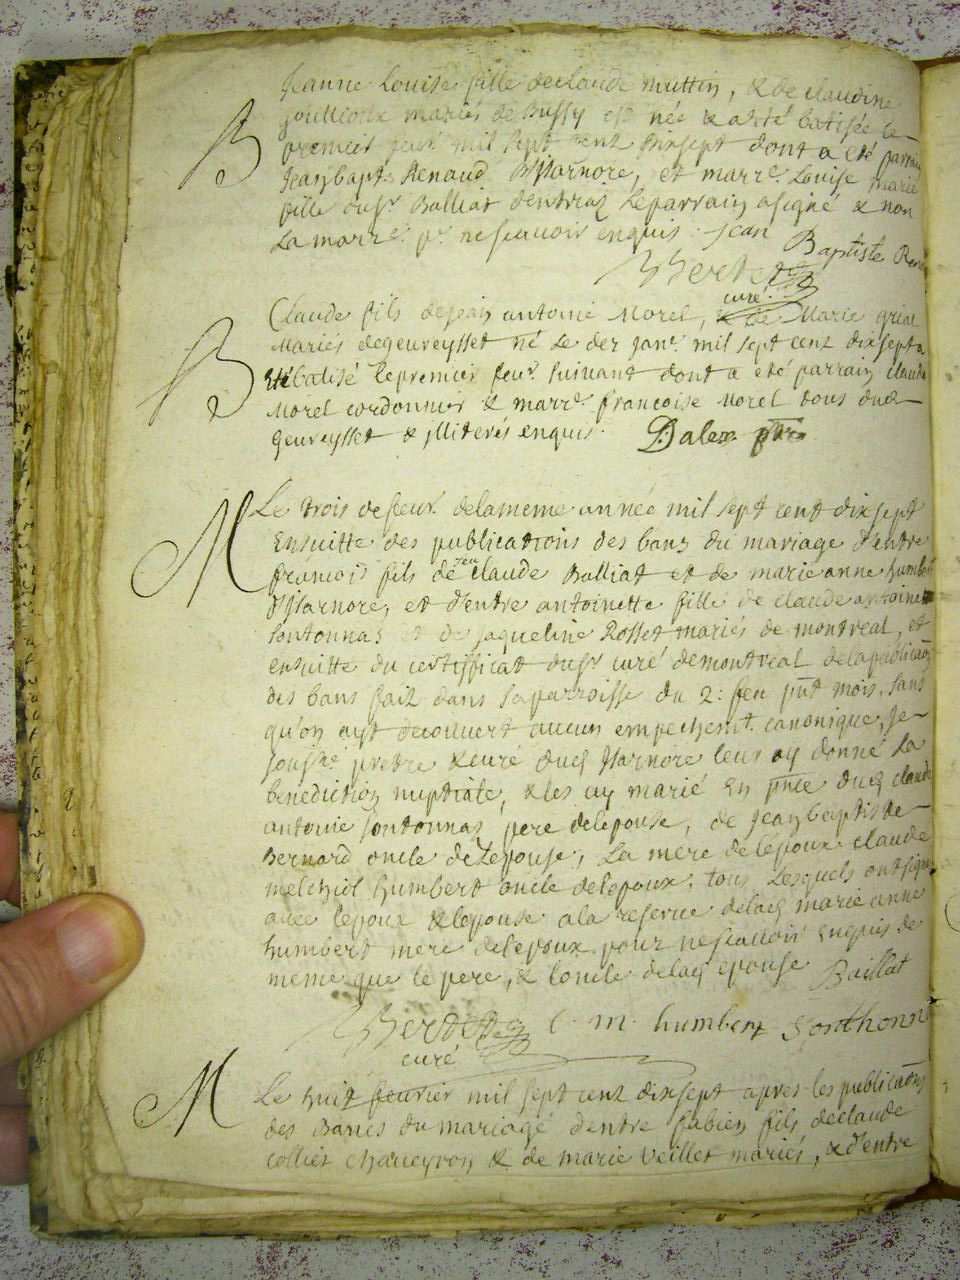 Jeanne Louise fille de Claude Muttin, & de Claudine
B
mariés de Bussy est née & a esté batisée le
premier feur mil sept cent dixsept dont a eté parrain
Jean bapt. Renaud d'Isarnore, et marre. Louise Marie
fille du sr Balliat d'entraz Le parrain a signé & non
La marre. pr. ne scavoir enquis. Jean Baptiste Ren
curé
Claude fils de Jean antoine Morel, & de Marie
B
Mariés de geureysset né Le der janr. mil sept cent dixsept a
eté batisé le premier feur. suivant dont a eté parrain claude
Morel cordonnier & marre. francoise Morel tous dud
geureysset & illiterés enquis. Dalex
M
Le trois de feur. de la meme année mil sept cent dixsept
Ensuitte des publications des bans du mariage d'entre
francois fils de feu Claude Balliat et de marie anne humbert
d'Isarnore, et d'entre antoinette fille de claude antoine
sontonnas et de jaqueline Rosset mariés de montreal, et
ensuitte du certifficat du sr curé de montreal de la publication
des bans fait dans sa parroisse du 2: feu pnt mois, sans
qu'on ayt decouvert aucun empechemt. canonique, Je
soussné pretre & curé dud Isarnore leur ay donné La
benediction nuptiale, & les ay marié En pnce dud claude
antoine sontonnas pere de lepouse, de Jean baptiste
Bernard oncle de Lepouse, La mere de lépoux claude
melchiol humbert oncle de lepoux, tous Lesquels ont signé
avec lepoux & lepouse a la reserve de lad marie anne
humbert mere de lepoux pour ne scavoir Enquis de
meme que le pere, & loncle de lad epouse Baillat
C. m. humbert Sonthonn
curé
M
Le huit fevrier mil sept cent dixsept apres les publications
des Bancs du mariage d'entre fabien fils de claude
collier chaveyron & de marie Veillet mariés, & d'entre